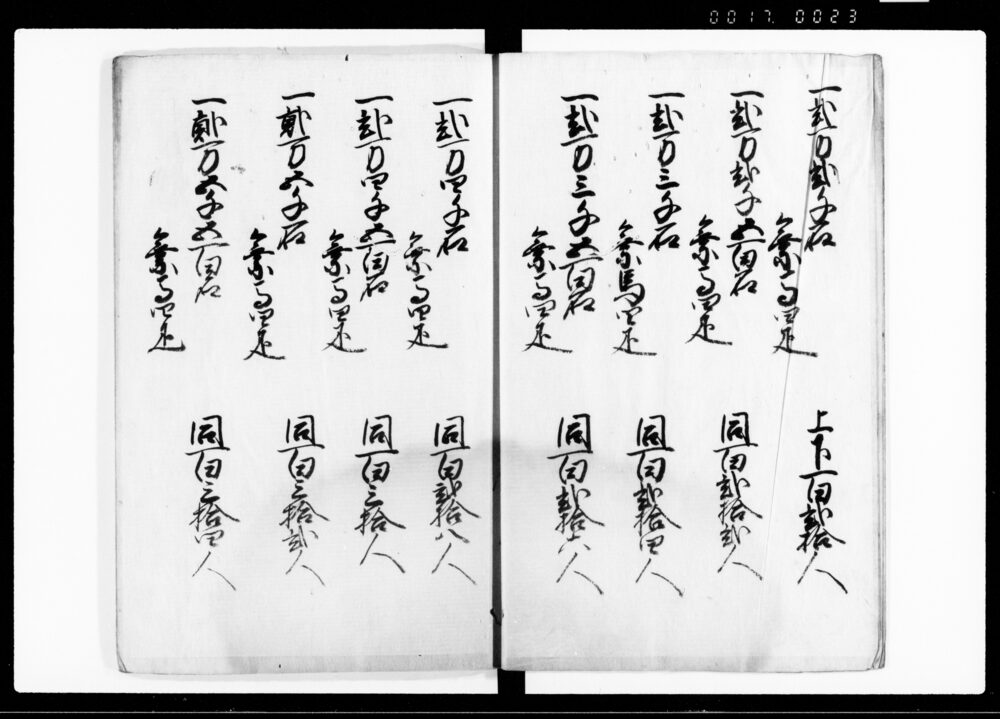 0017. 0023
一弐万弐千石
乗馬四疋
上下百弐拾人
一弐万弐千五百石
乗馬四疋
同百弐拾弐人
一弐万三千石
乗馬四疋
同百弐拾四人
一弐万三千五百石
乗馬四疋
同百弐拾六人
一弐万四千石
乗馬四疋
同百弐拾八人
一弐万四千五百石
乗馬四疋
同百三拾人
一弐万五千石
乗馬四疋
同百三拾弐人
一弐万五千五百石
乗馬四疋
同百三拾四人